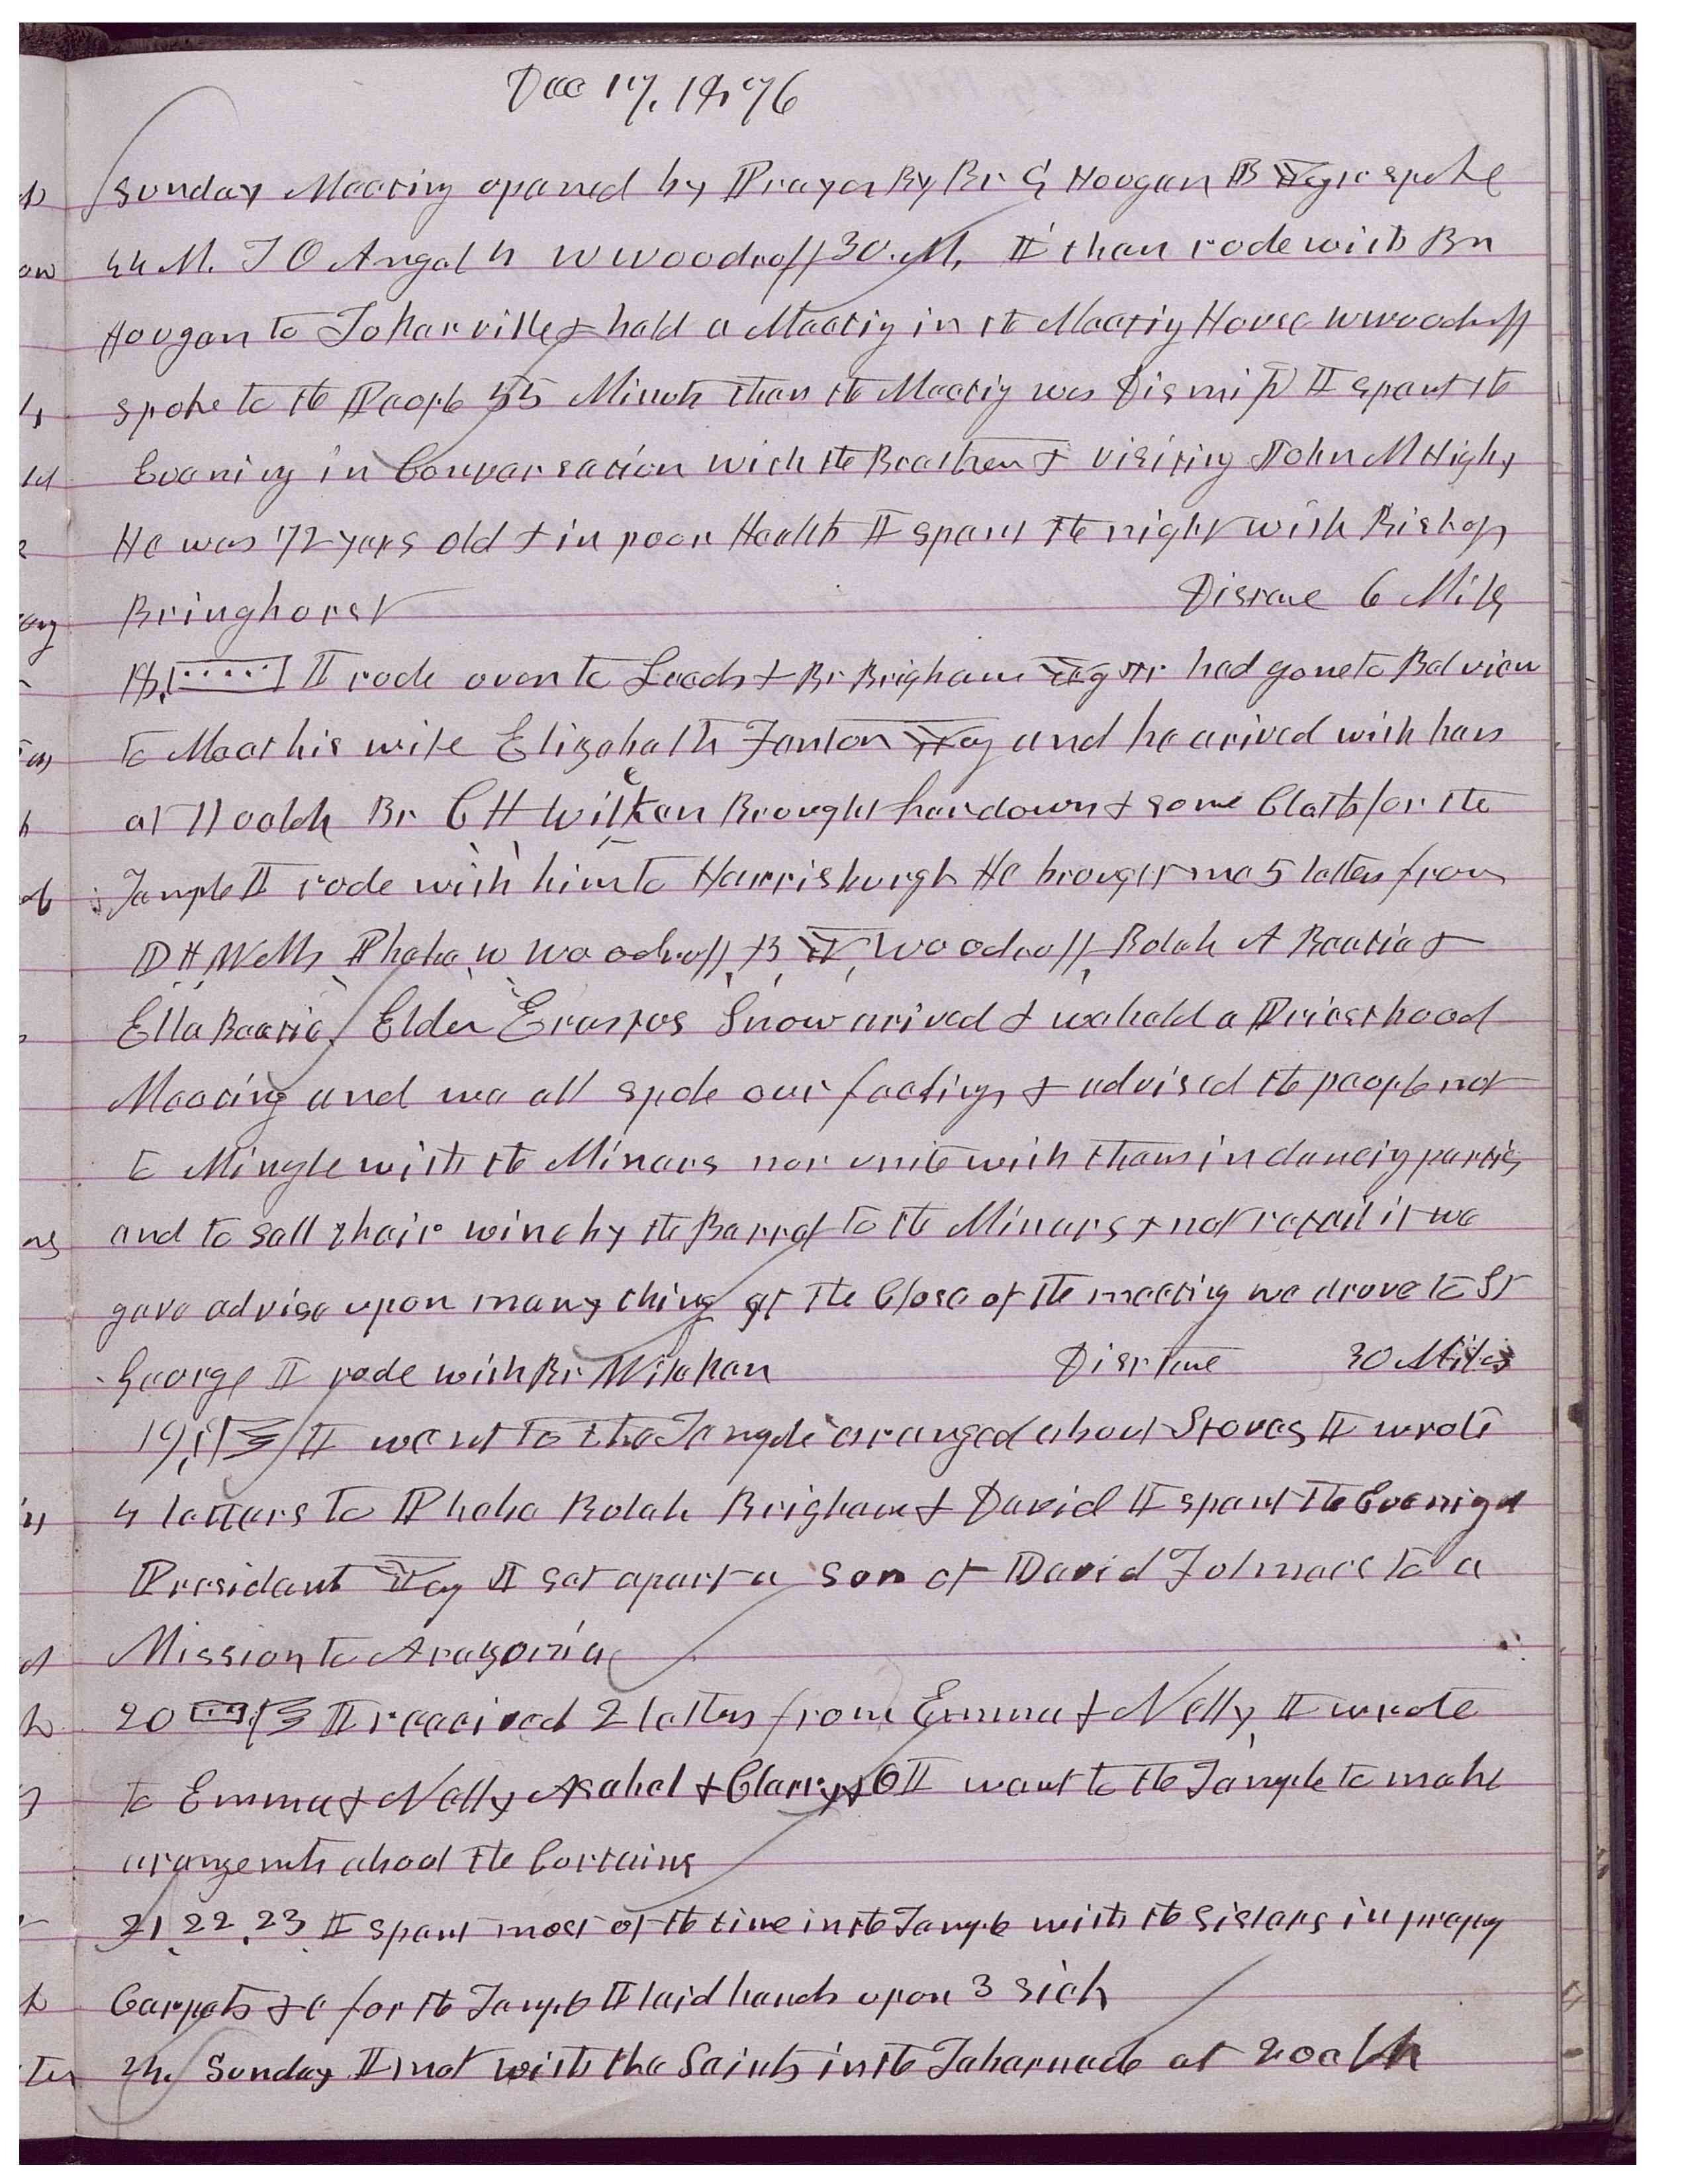 Dec 17, 1876
Sunday Meeting opened by Prayer By Br G Hoogan B Yg jr spoke
44 M. J O Angel 4 W Woodruff 30. M, I then rode with Br
Hoogan to Tokarville & held a Meeting in the Meeting House W Woodruff
spoke to the People 55 Minuts then the Meeting was Dismissd I spent the
Evening in Conversation with the Brethren & visiting John M Higby
He was 72 years old & in poor Health I spent the night with Bishop
Bringhorst Distance 6 Miles
18, I rode over to Leeds & Br Brigham Yg jr had gone to Belview
to Meet his wife Elizabeth Fenton Yg and he arived with her
at 11 oclok Br C H Wilcken Brought her down & some Cloth for the
Temple I rode with him to Harrisburgh He brought me 5 letters from
D H Wells Phebe W Woodruff, B Y Woodruff, Bulah A Beatie &
Ella Beatie, Elder Erastus Snow arived & we held a Priesthood
Meeting and we all spoke our feelings & advised the people not
to Mingle with the Miners nor unite with them in dancing parties
and to sell their wine by the Barrel to the Miners & not retail it we
gave advise upon many things at the Close of the meeting we drove to St
George I rode with Br Wilcken Distance 30 Miles
19, I went to the Temple arranged about Stoves I wrote
4 letters to Phebe Bulah Brigham & David I spent the Evening at
President Yg I set apart a son of David Fulmore to a
Mission to Arazonia
20 I received 2 letters from Emma & Nelly, I wrote
to Emma & Nelly Asahel & Clary & O I went to the Temple to make
arangemts about the Cortains
21, 22, 23 I spent most of the time in the Temple with the Sisters in prepg
Carpets &c for the Temple I laid hands upon 3 sick
24. Sunday I met with the Saints in the Tabernacle at 2 oclk